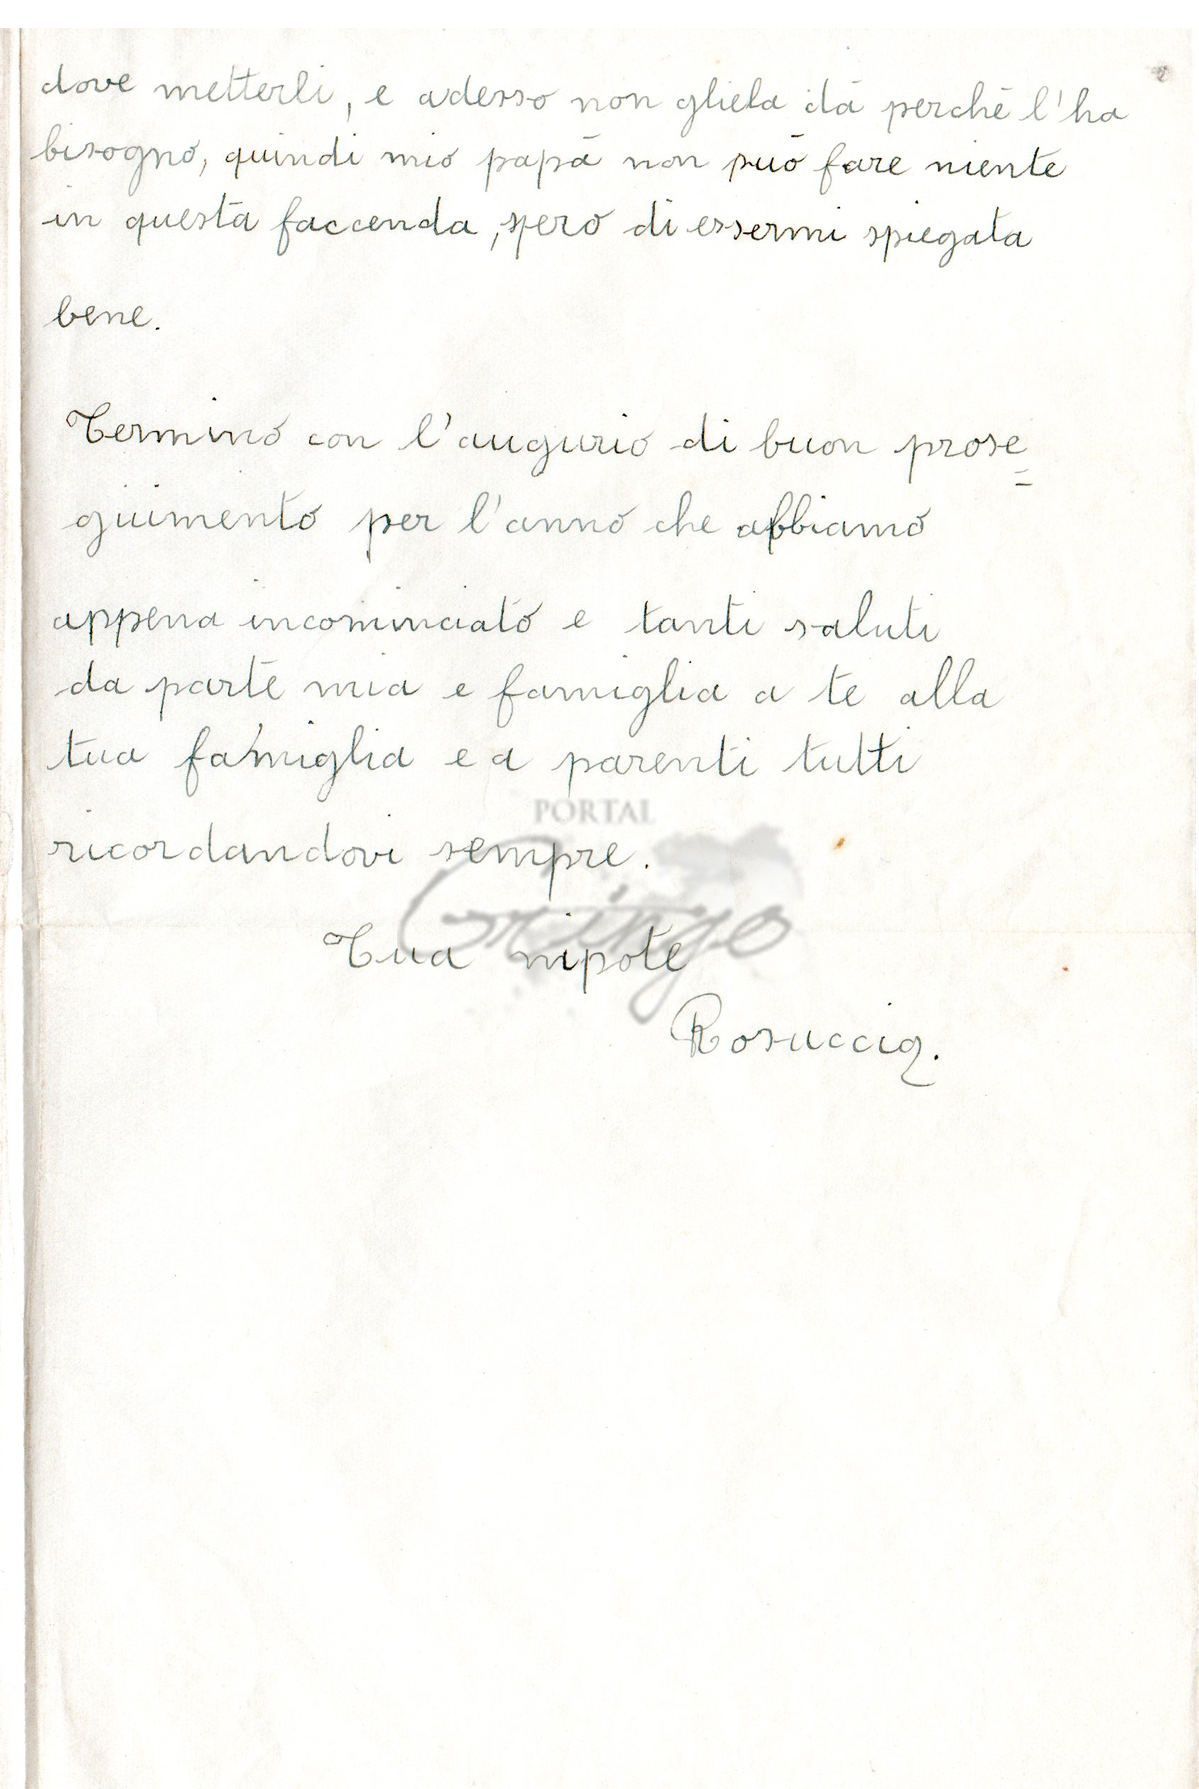 dove metterli, e adesso non gliela dà perchè l'ha
bisogno, quindi mio papà non può fare niente
in questa faccenda, spero di essermi spiegata
bene.
Termino con l'augurio di buon prose=
guimento per l'anno che abbiamo
appena incominciato e tanti saluti
da parte mia e famiglia a te alla
tua famiglia e a parenti tutti
PORTAL
ricordandovi sempre.
Gringo
Tua nipote
Rosuccia.